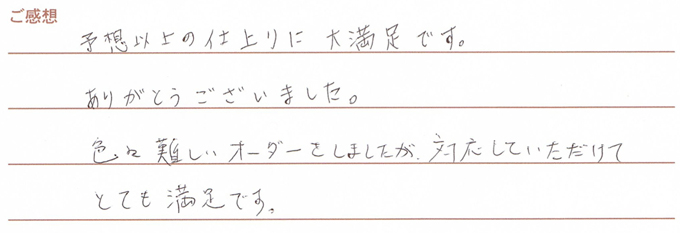 ご感想
予想以上の仕上りに大満足です。
ありがとうございました。
色々難しいオーダーをしましたが、対応していただけて
とても満足です。